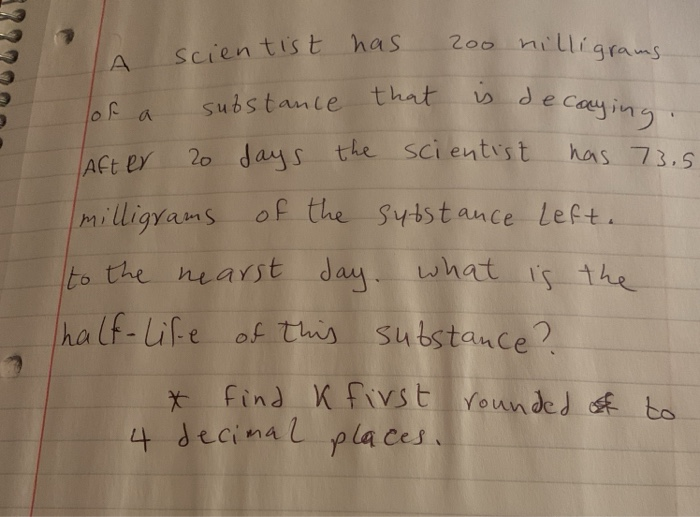 A scientist has 200 milligrams
of a substance that is decaying.
After 20 days the scientist has 73.5
milligrams of the substance left.
to the nearst day. what is the
half-life of this substance?
* find K first rounded to
4 decimal places.